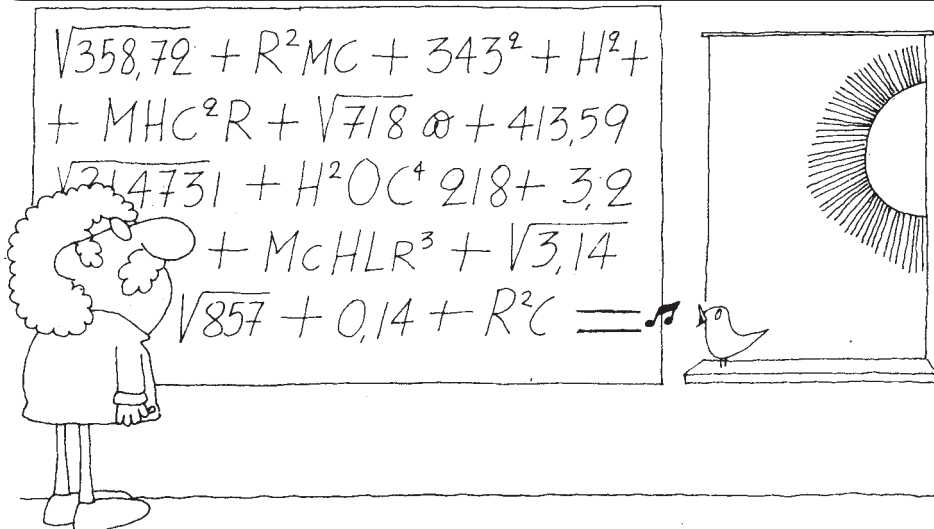 √358,72 + R²MC + 343² + H² +
+ MHC²R + √718 ∞ + 413,59
4731 + H²OC⁴ 218 + 3,2
+ McHLR³ + √3,14
√857 + 0,14 + R²C =